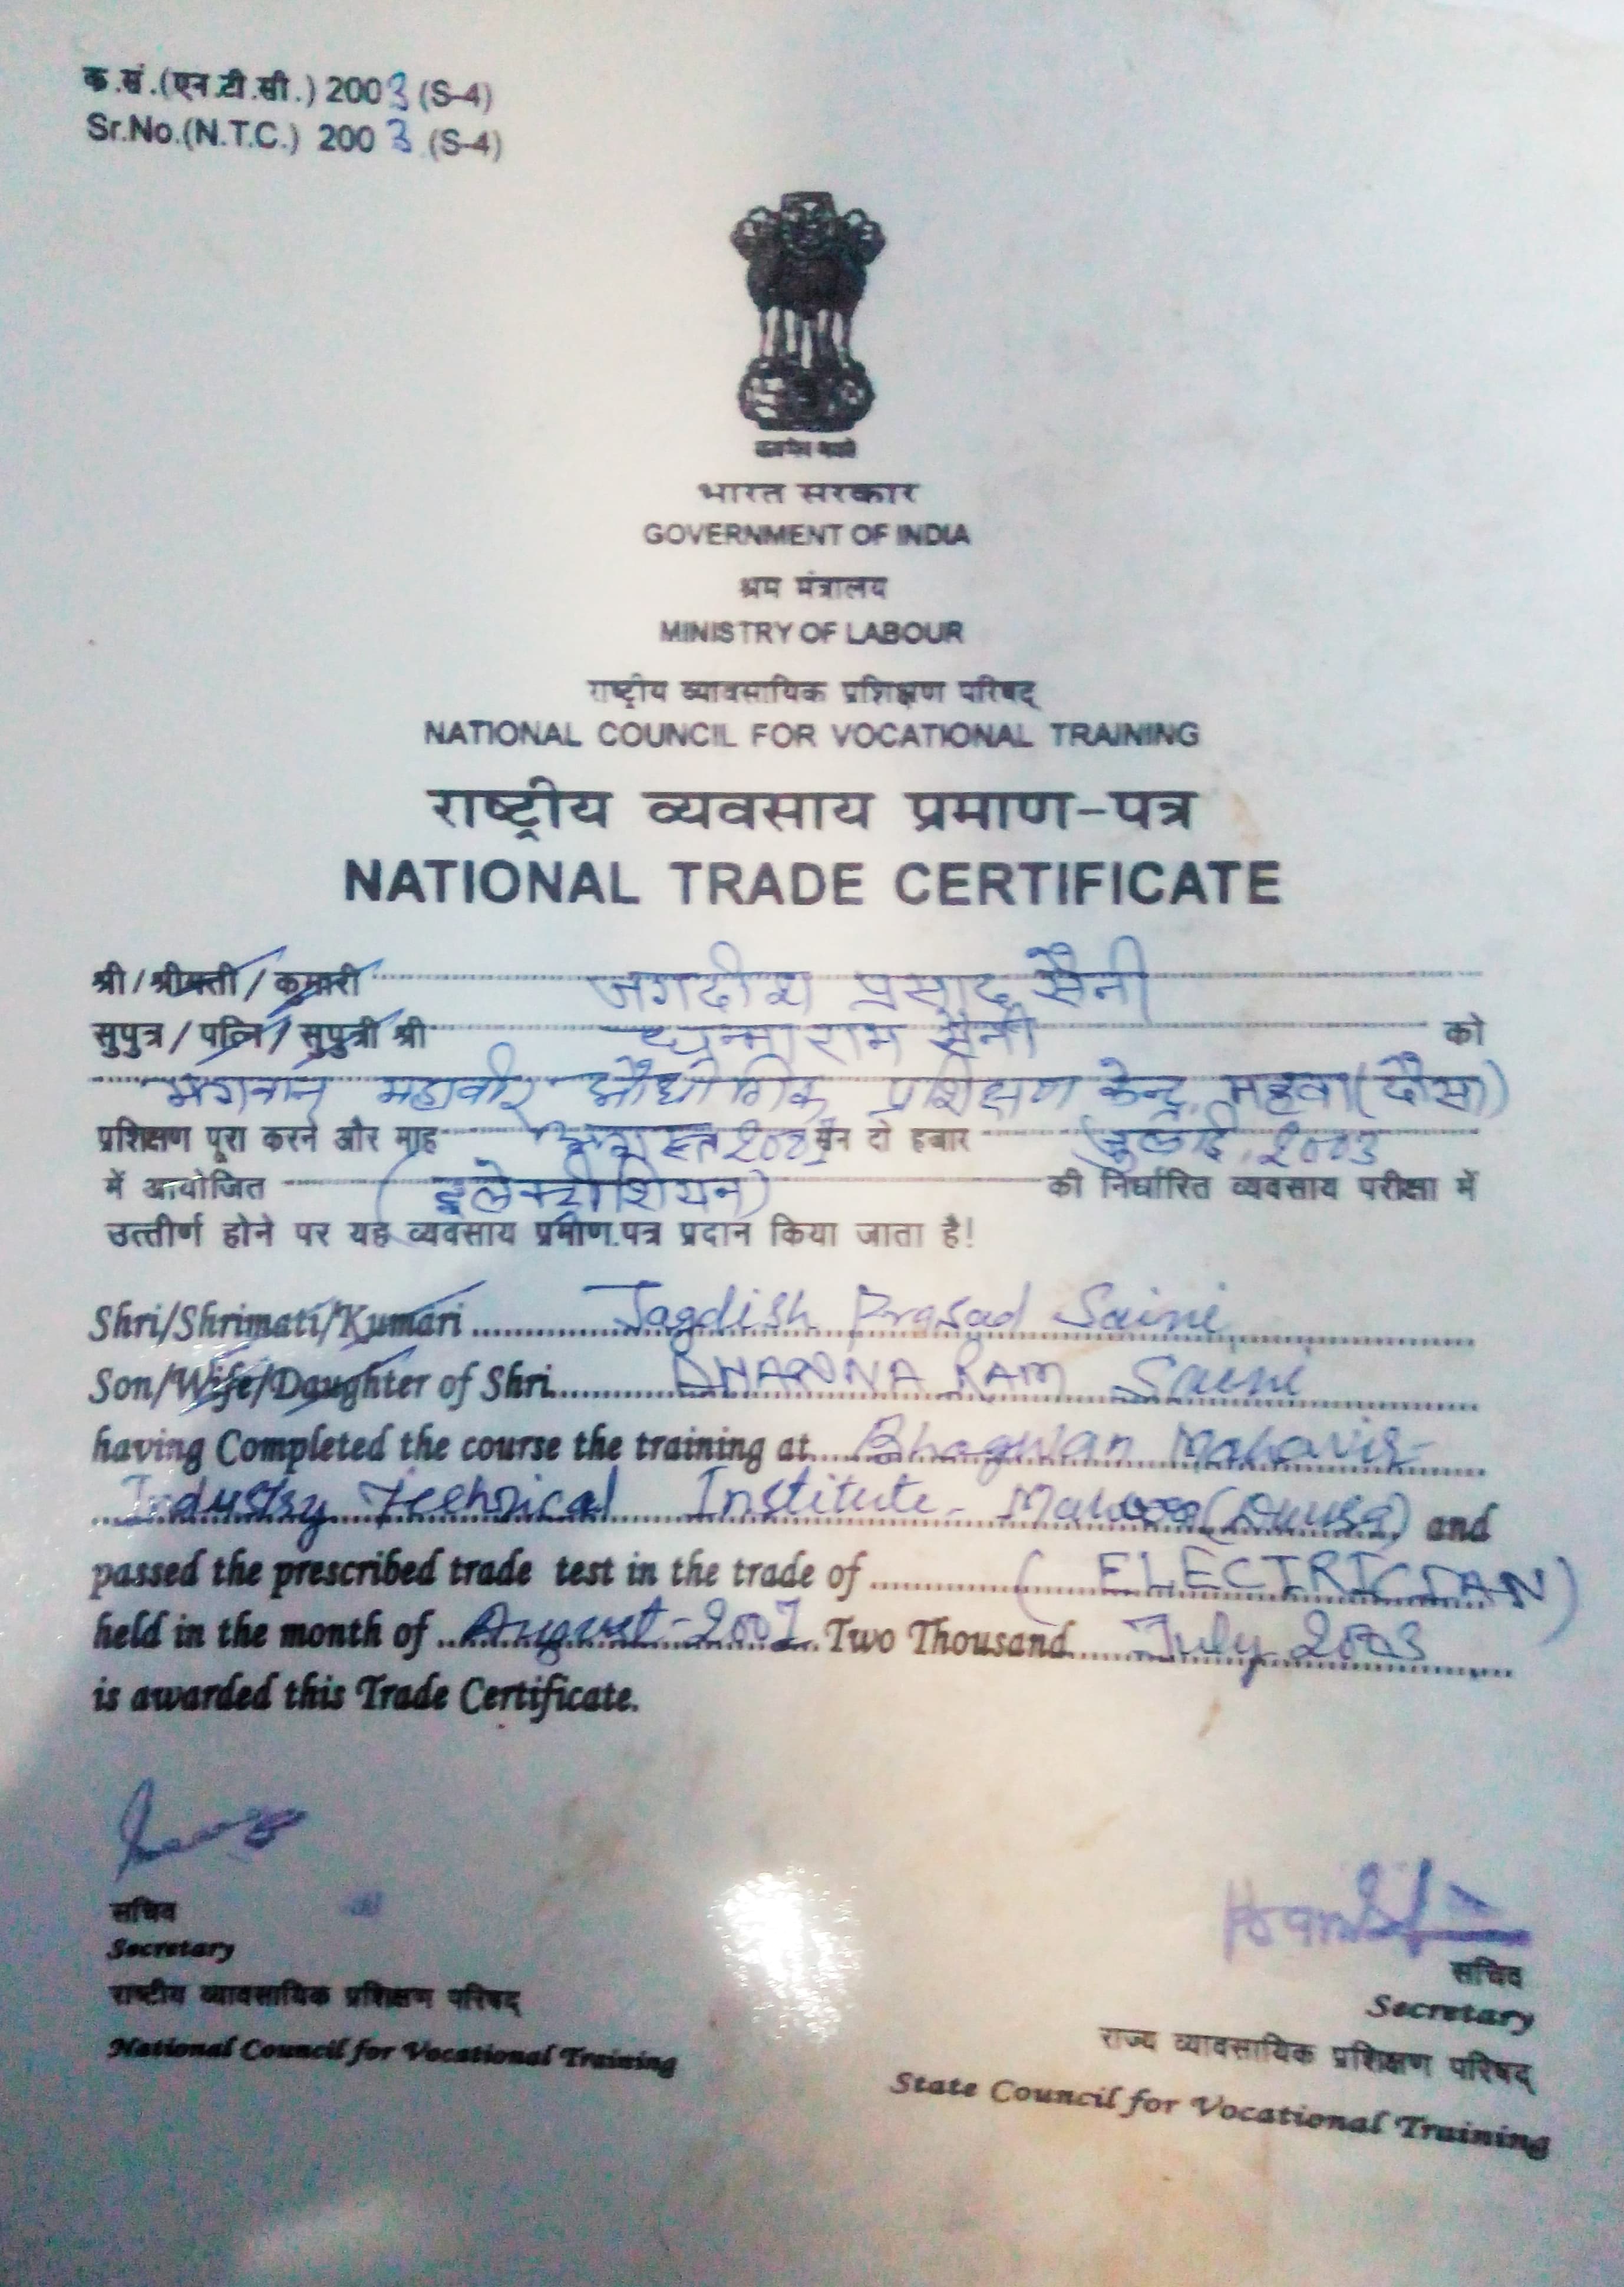 क.सं.(एन.टी.सी.) 2003 (S-4)
Sr.No.(N.T.C.) 2003 (S-4)
भारत सरकार
GOVERNMENT OF INDIA
श्रम मंत्रालय
MINISTRY OF LABOUR
राष्ट्रीय व्यावसायिक प्रशिक्षण परिषद्
NATIONAL COUNCIL FOR VOCATIONAL TRAINING
राष्ट्रीय व्यवसाय प्रमाण-पत्र
NATIONAL TRADE CERTIFICATE
श्री/श्रीमती/कुमारी जगदीश प्रसाद सैनी
सुपुत्र/पत्नि/सुपुत्री श्री धन्ना राम सैनी को
भगवान महावीर औधोगिक प्रशिक्षण केन्द्र महवा (दौसा)
प्रशिक्षण पूरा करने और माह अगस्त 2001 सन दो हजार जुलाई 2003
में आयोजित (इलेक्ट्रीशियन) की निर्धारित व्यवसाय परीक्षा में
उत्तीर्ण होने पर यह व्यवसाय प्रमाण.पत्र प्रदान किया जाता है!
Shri/Shrimati/Kumari Jagdish Prasad Saini
Son/Wife/Daughter of Shri DHANNA RAM Saini
having Completed the course the training at Bhagwan Mahavir
Industry Technical Institute - (Dausa) and
passed the prescribed trade test in the trade of (ELECTRICIAN)
held in the month of August-2001 Two Thousand July 2003
is awarded this Trade Certificate.
सचिव
Secretary
राष्टीय व्यावसायिक प्रशिक्षण परिषद्
National Council for Vocational Training
सचिव
Secretary
राज्य व्यावसायिक प्रशिक्षण परिषद्
State Council for Vocational Training